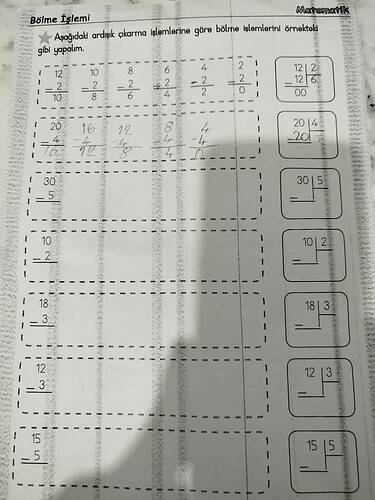 Bölme İşlemi
Matematik
Aşağıdaki ardışık çıkarma işlemlerine göre bölme işlemlerini örnekteki
gibi yapalım.
12 10 8 6 4 2 12 2
- 2 - 2 - 2 - 2 - 2 - 2 - 12 6
10 8 6 4 2 0 00
20 16 12 8 4 20 4
- 4 - 4 - 4 - 4 - 4 - 20
16 12 8 4 0
30 30 5
- 5 -
10 10 2
- 2 -
18 18 3
- 3 -
12 12 3
- 3 -
15 15 5
- 5 -